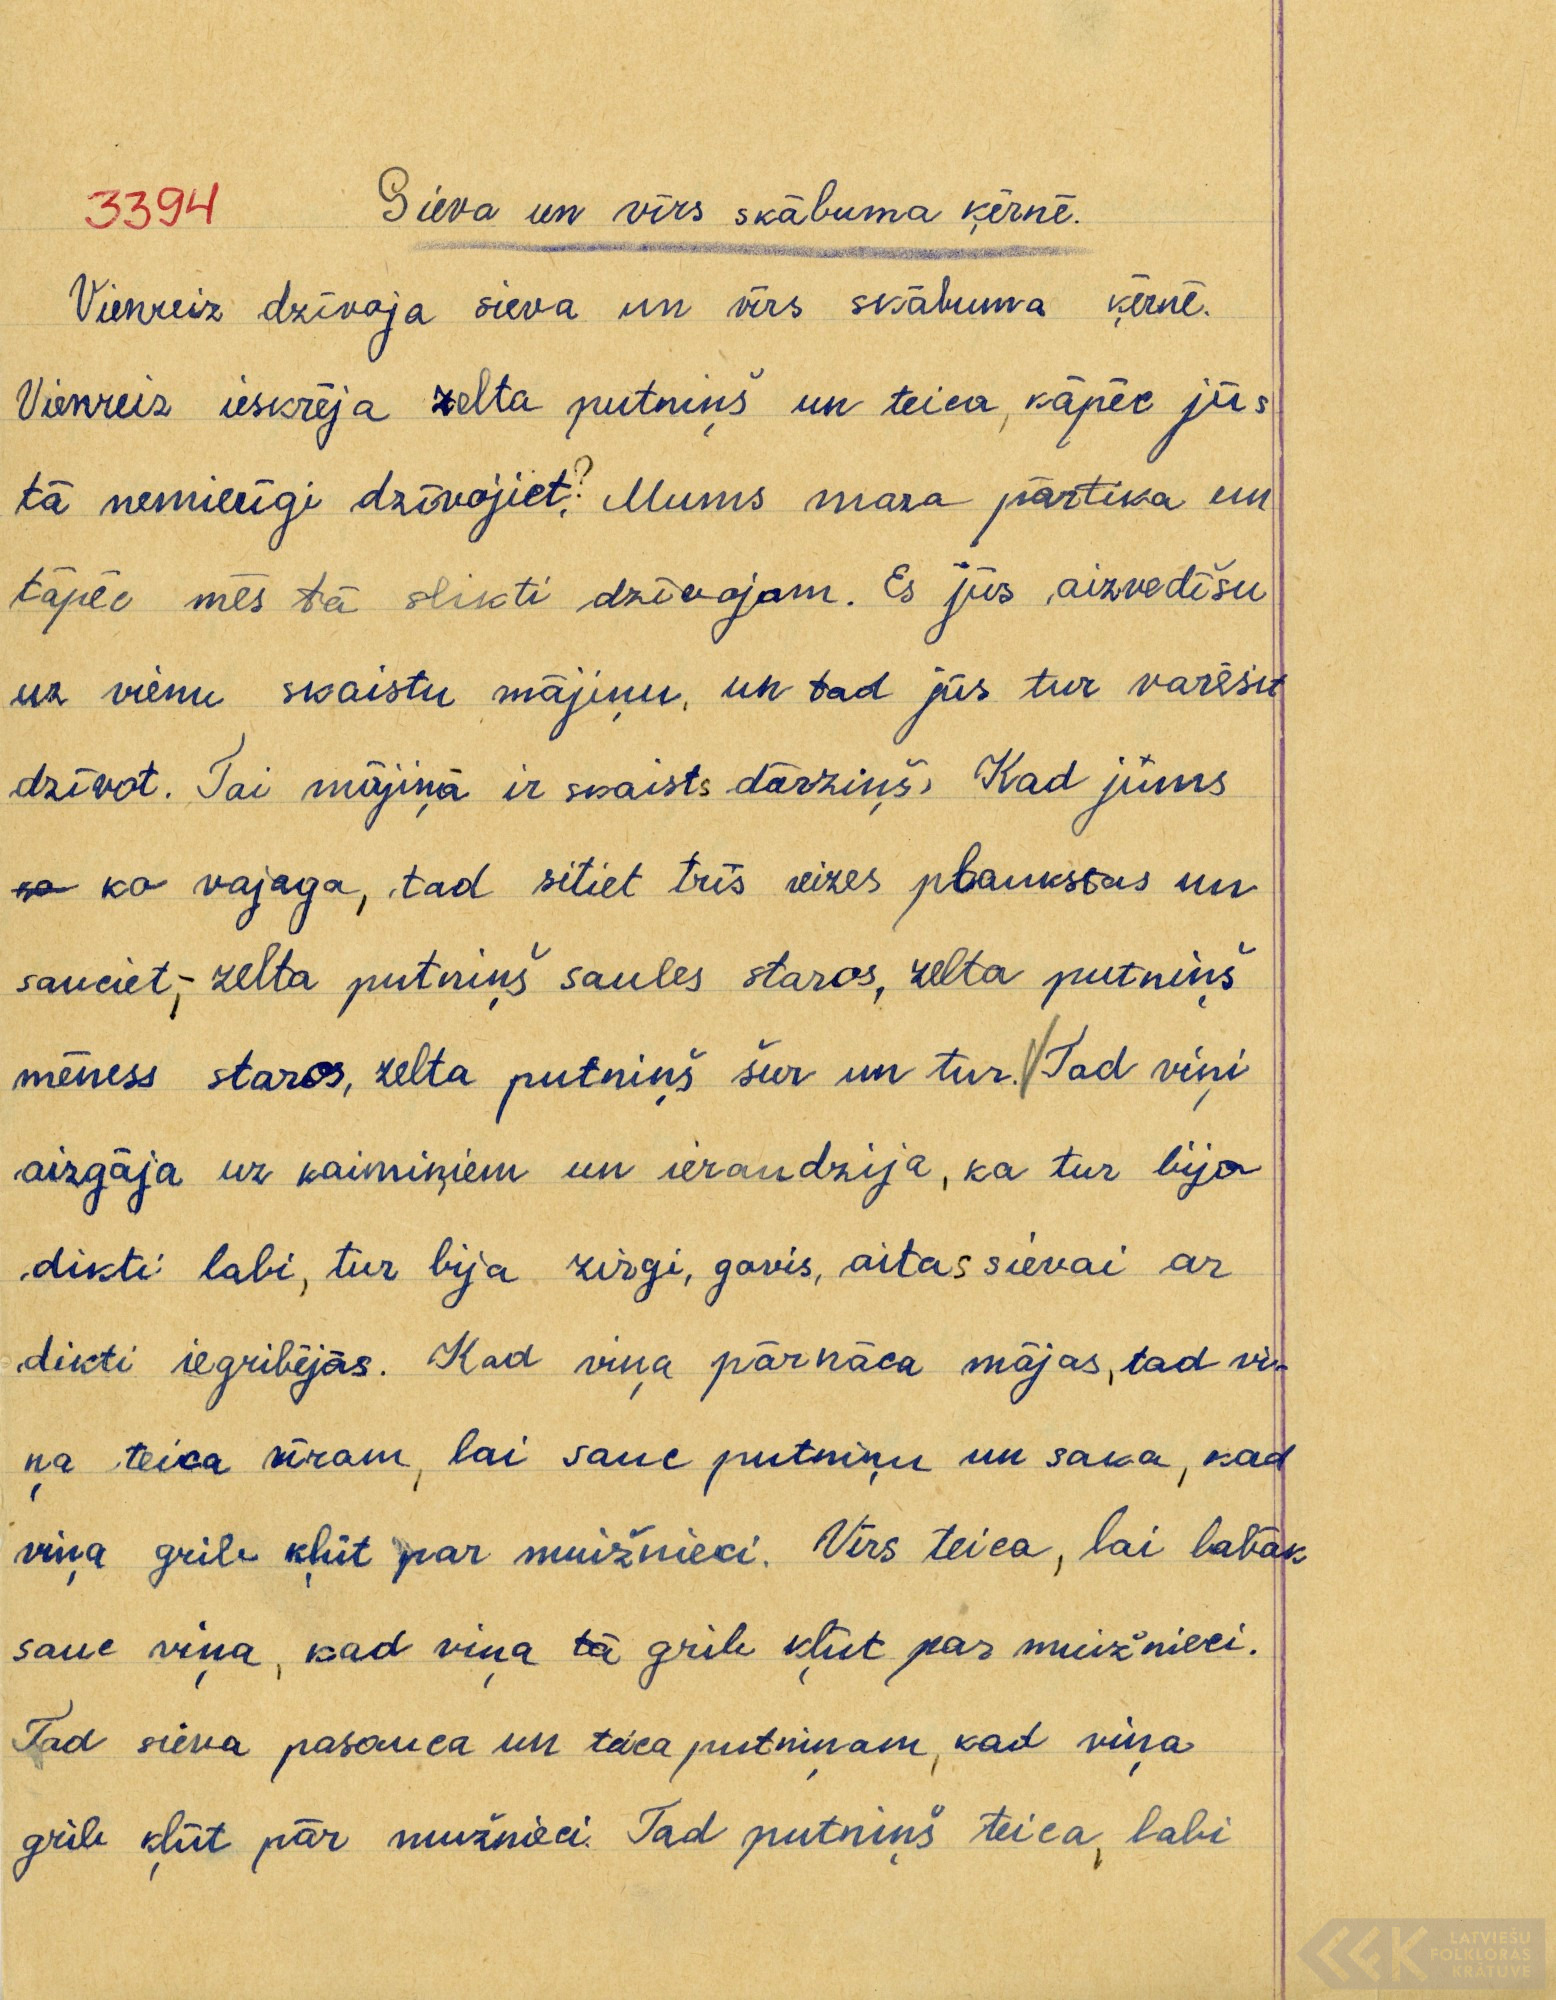 3394 Sieva un vīrs skābuma ķērnē.
Vienreiz dzīvoja sieva un vīrs skābuma ķērnē.
Vienreiz ieskrēja zelta putniņš un teica, kāpēc jūs
tā nemierīgi dzīvojiet? Mums maza pārtika un
tāpēc mēs tā slikti dzīvojam. Es jūs aizvedīšu
uz vienu skaistu mājiņu, un tad jūs tur varēsit
dzīvot. Tai mājiņā ir skaists dārziņš. Kad jums
ko ko vajaga, tad sitiet trīs reizes plaukstas un
sauciet, - zelta putniņš saules staros, zelta putniņš
mēness staros, zelta putniņš šur un tur. Tad viņi
aizgāja uz kaimiņiem un ieraudzija, ka tur bija
dikti labi, tur bija zirgi, govis, aitas sievai ar
dikti iegribējās. Kad viņa pārnāca mājas, tad vi-
ņa teica vīram, lai sauc putniņu un saka, kad
viņa grib kļūt par muižnieci. Vīrs teica, lai labāk
sauc viņa, kad viņa tā grib kļūt par muižnieci.
Tad sieva pasauca un teica putniņam, kad viņa
grib kļūt pār mužnieci. Tad putniņš teica, labi
LATVIEŠU
FOLKLORAS
KRĀTUVE